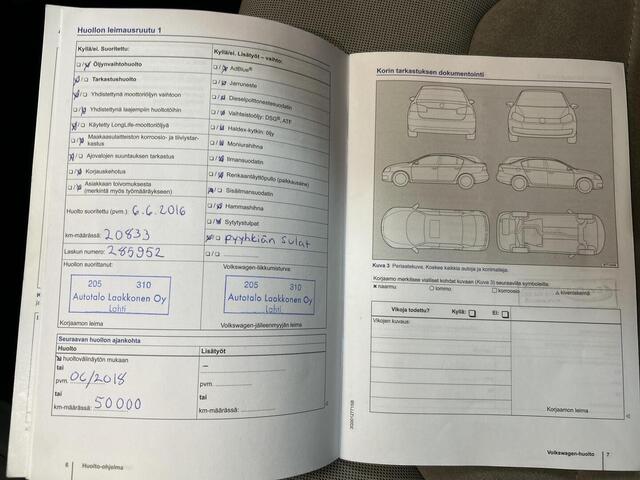 Huollon leimausruutu 1
Kyllä/ei. Suoritettu:
Öljynvaihtohuolto
Tarkastushuolto
Yhdistettynä moottoriöljyn vaihtoon
Yhdistettynä laajempiin huoltotöihin
Käytetty LongLife-moottoriöljyä
Maakaasulaitteiston korroosio- ja tiiviystar-
kastus
Ajovalojen suuntauksen tarkastus
Korjauskehotus
Asiakkaan toivomuksesta
(merkintä myös työmääräykseen)
Huolto suoritettu (pvm.) 6.6.2016
km-määrässä: 20833
Laskun numero: 285952
Huollon suorittanut:
205 310
Autotalo Laakkonen Oy
Lahti
Korjaamon leima
Kyllä/ei. Lisätyöt – vaihto:
AdBlue®
Jarruneste
Dieselpolttonestesuodatin
Vaihteistoöljy: DSG®, ATF
Haldex-kytkin: öljy
Moniurahihna
Ilmansuodatin
Renkaantäyttöpullo (paikkausaine)
Sisäilmansuodatin
Hammashihna
Sytytystulpat
pyyhkiän sulat
Volkswagen-liikkumisturva:
205 310
Autotalo Laakkonen Oy
Lahti
Volkswagen-jälleenmyyjän leima
Seuraavan huollon ajankohta
Huolto
huoltovälinäytön mukaan
tai
pvm. 06/2018
tai
km-määrässä: 50000
Lisätyöt
–
tai
pvm.
tai
km-määrässä:
6 Huolto-ohjelma
Korin tarkastuksen dokumentointi
Kuva 3 Periaatekuva. Koskee kaikkia autoja ja korimalleja.
Korjaamo merkitsee vialliset kohdat kuvaan (Kuva 3) seuraavilla symboleilla:
× naarmu ○ lommo □ korroosio △ kiveniskemä
Vikoja todettu? Kyllä: Ei:
Vikojen kuvaus:
Korjaamon leima
Volkswagen-huolto 7